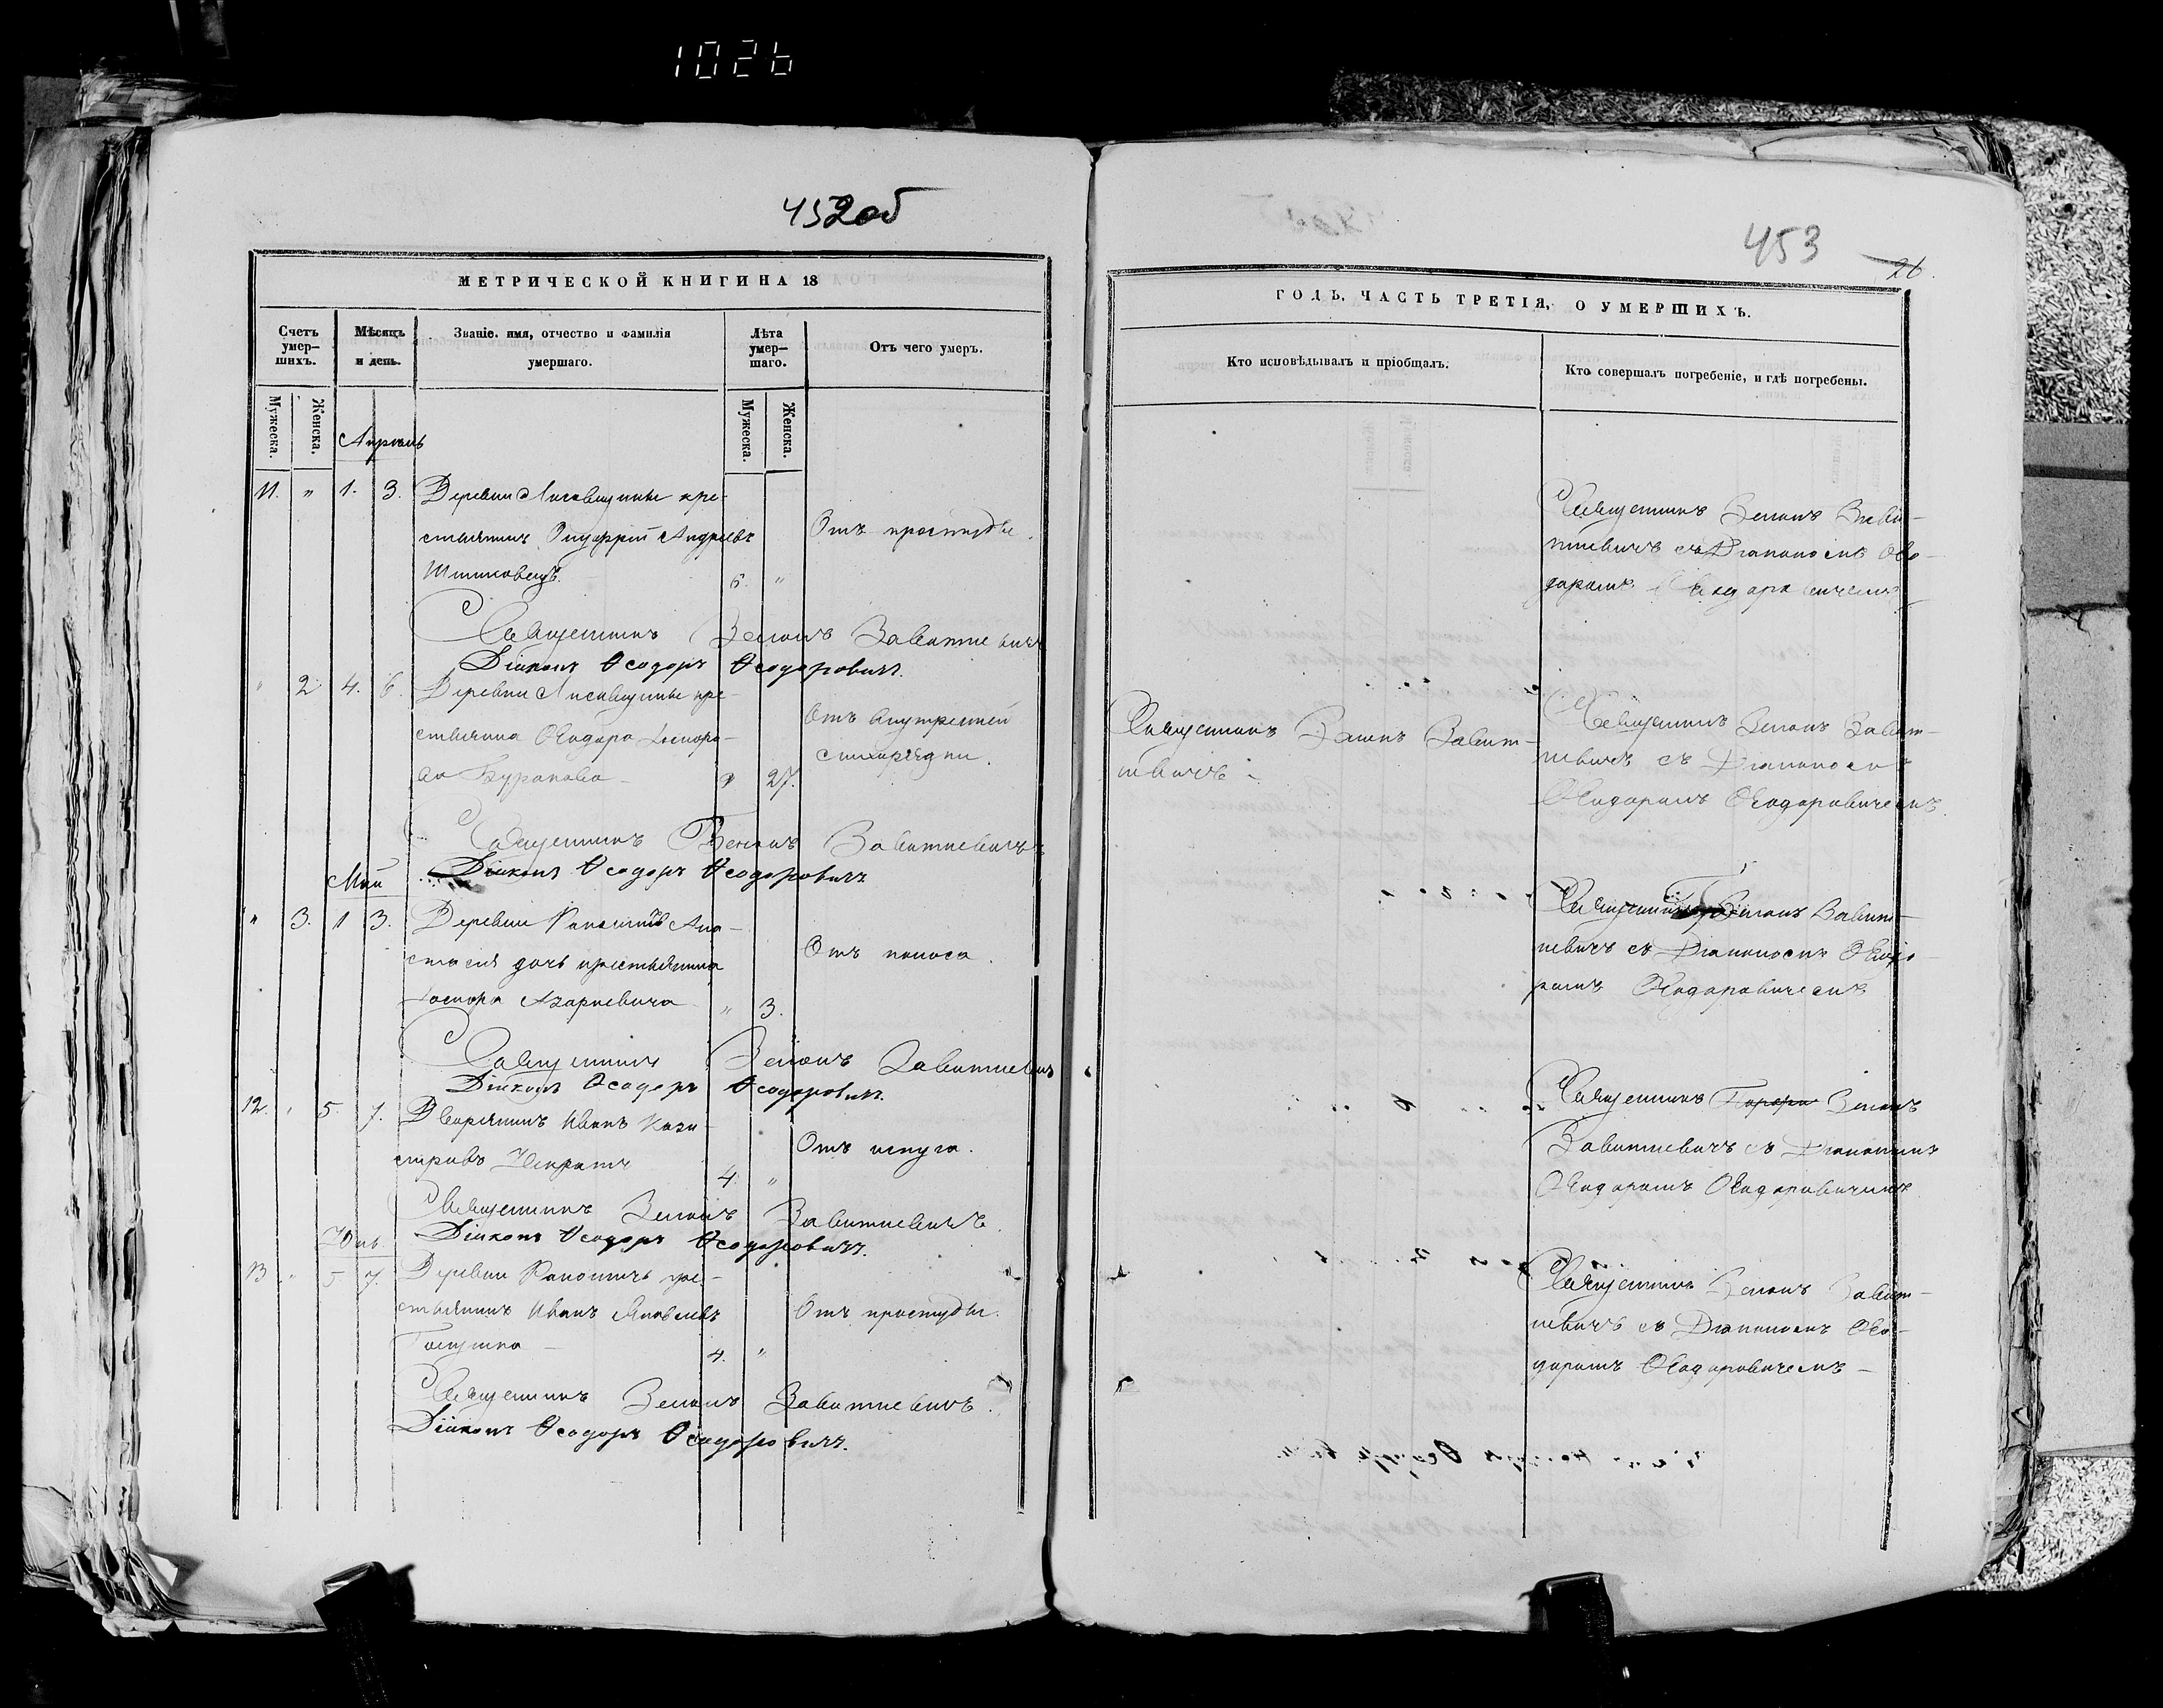 1026
452об
МЕТРИЧЕСКОЙ КНИГИ НА 18
Счетъ умер-шихъ.
Мѣсяцъ и день.
Званіе, имя, отчество и фамилія умершаго.
Лѣта умер-шаго.
Отъ чего умеръ.
Мужеска.
Женска.
Мужеска.
Женска.
Апрѣль
11. " 1. 3. Деревни Лисавщины кре-
стьянинъ Онуфрій Андреевъ Отъ простуды.
6. "
Священникъ Зенонъ Завитневичъ
Діаконъ Ѳеодоръ Ѳеодоровичъ.
" 2 4. 6. Деревни Лисавщины кре-
стьянка Отъ внутренней
27.
Священникъ Зенонъ Завитневичъ
Діаконъ Ѳеодоръ Ѳеодоровичъ
Май
" 3. 1 3. Деревни Ана-
стасія дочь крестьянина Отъ поноса.
Азаркевича " 3.
Священникъ Зенонъ Завитневичъ
Діаконъ Ѳеодоръ Ѳеодоровичъ.
12. " 5. 7. Дворянинъ Иванъ
Отъ испуга.
4. "
Священникъ Зенонъ Завитневичъ.
Діаконъ Ѳеодоръ Ѳеодоровичъ.
Юнь
13 " 5 7. Деревни кре-
стьянинъ Иванъ Яковлевъ Отъ простуды.
4. "
Священникъ Зенонъ Завитневичъ.
Діаконъ Ѳеодоръ Ѳеодоровичъ.
453
26.
ГОДЪ, ЧАСТЬ ТРЕТІЯ, О УМЕРШИХЪ.
Кто исповѣдывалъ и пріобщалъ.
Кто совершалъ погребеніе, и гдѣ погребены.
Священникъ Зенонъ Завит-
невичъ съ Діакономъ Ѳео-
доромъ Ѳеодоровичемъ
Священникъ Зенонъ Завит-
невичъ
Священникъ Зенонъ Завит-
невичъ съ Діакономъ
Ѳеодоромъ Ѳеодоровичемъ
Священникъ Зенонъ Завит-
невичъ съ Діакономъ Ѳеодо-
ромъ Ѳеодоровичемъ
Священникъ Зенонъ
Завитневичъ съ Діакономъ
Ѳеодоромъ Ѳеодоровичемъ
Священникъ Зенонъ Завит-
невичъ съ Діакономъ Ѳео-
доромъ Ѳеодоровичемъ